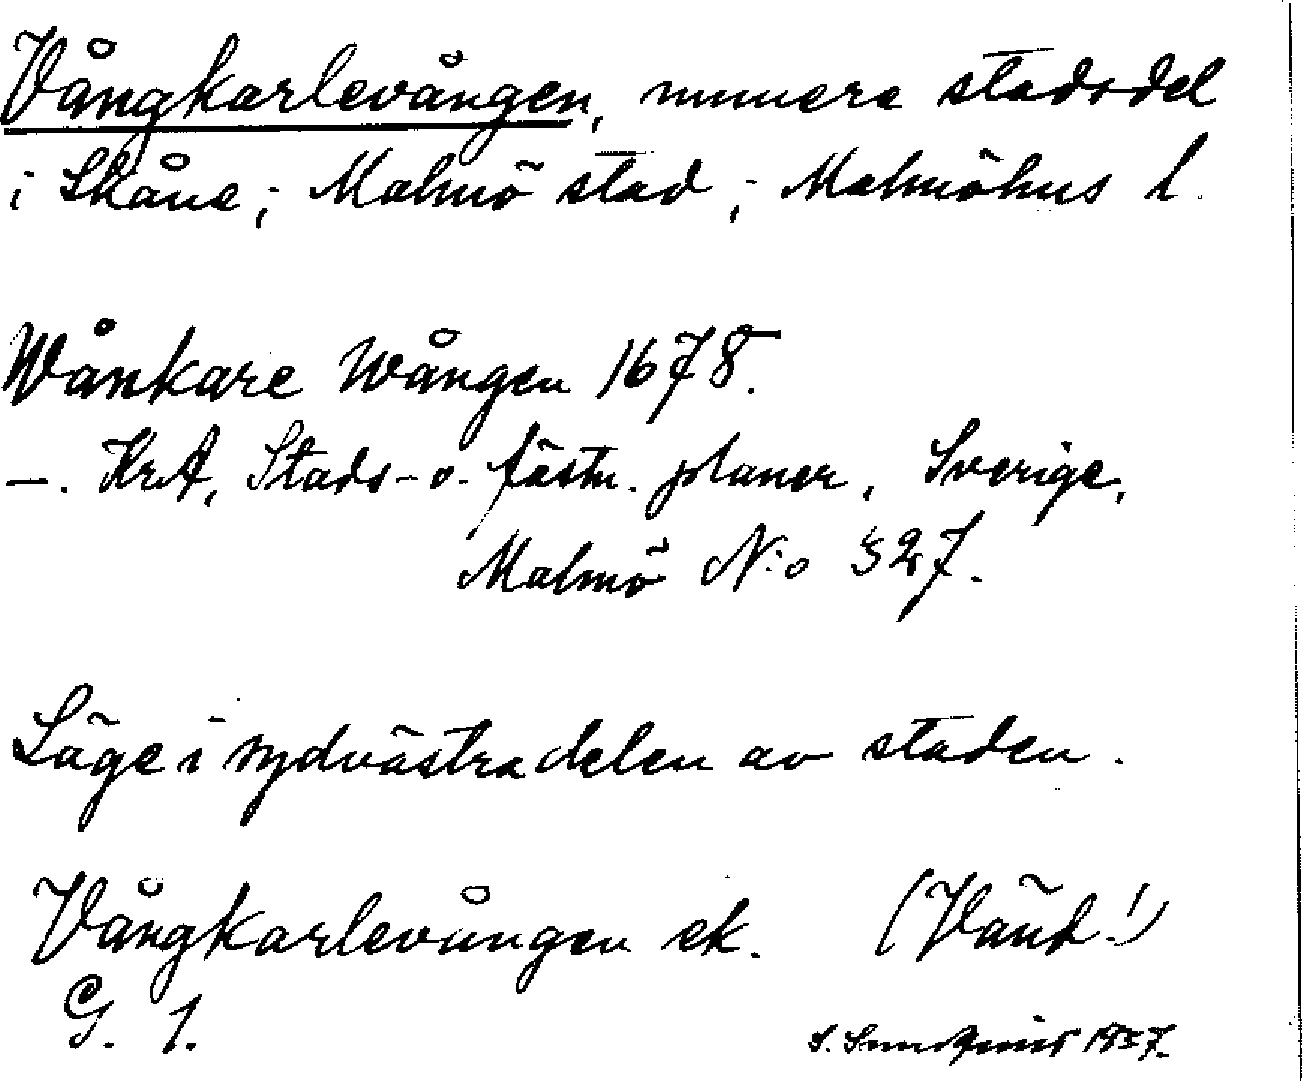 Vångkarlevången, numera stadsdel
i Skåne; Malmö stad; Malmöhus l.
Wånkare Wången 1678.
—. KrA, Stads- o. fästn. planer, Sverige,
Malmö N:o 327.
Läge i sydvästra delen av staden.
Vångkarlevången ek. (Vänd!)
G. 1.
S. Sundqvist 1937.